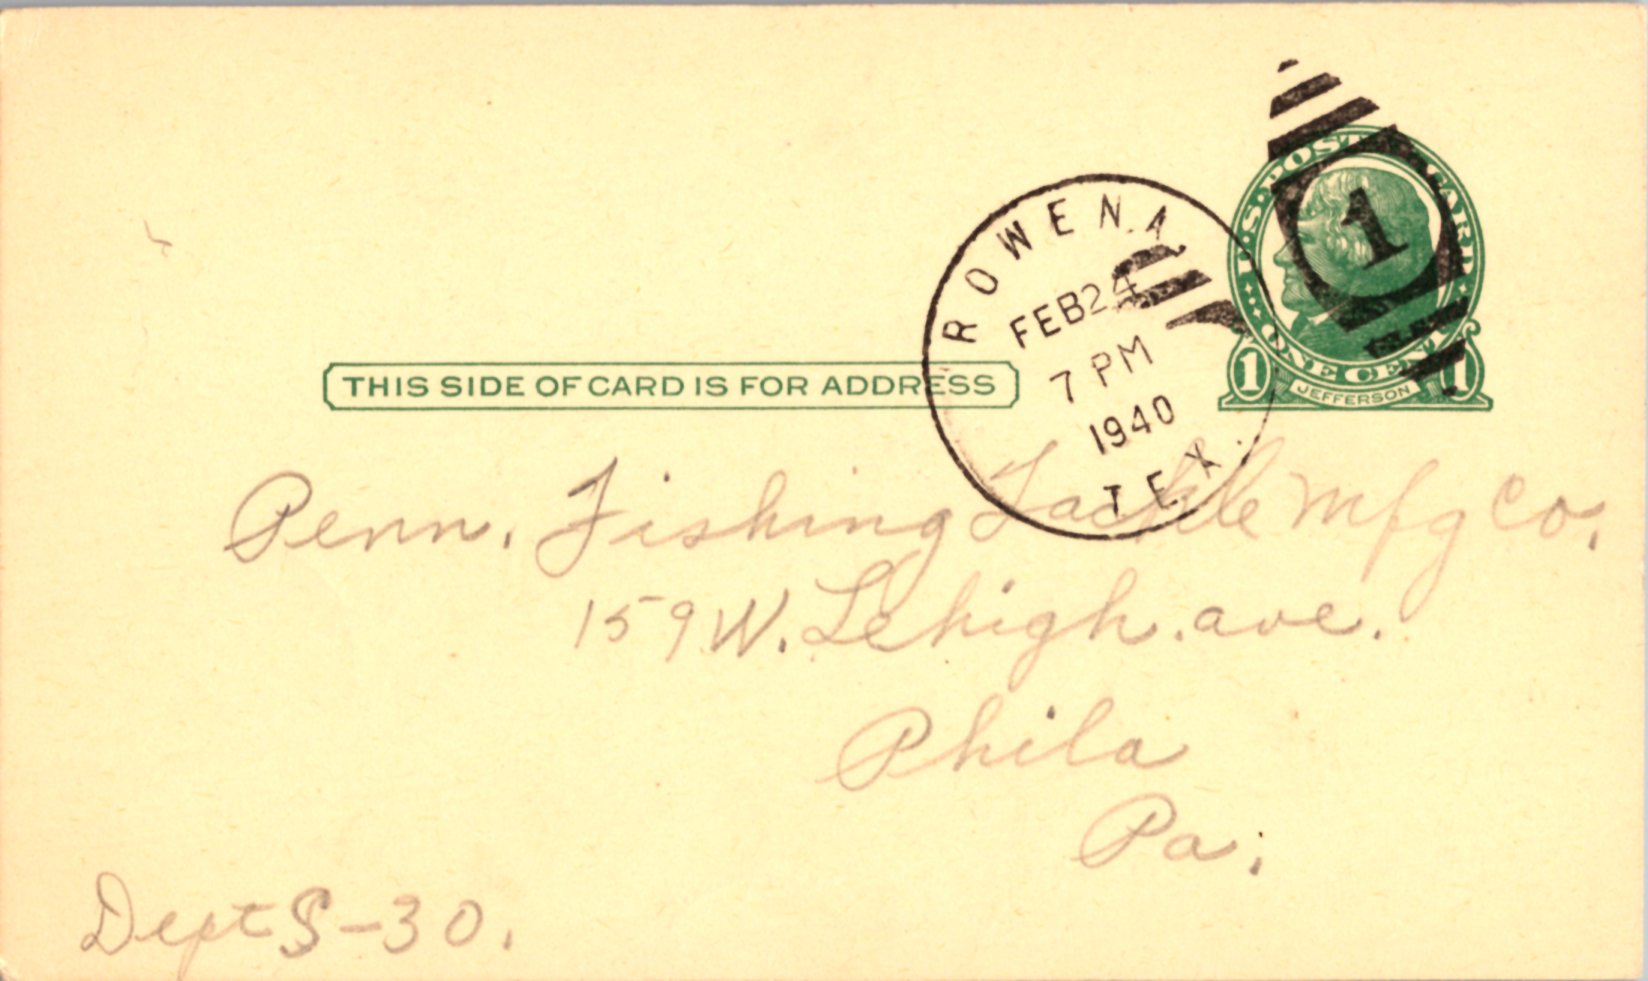 U.S. POSTAL CARD
1
ROWENA
FEB 24
7 PM
1940
TEX.
ONE CENT
1 1
JEFFERSON
THIS SIDE OF CARD IS FOR ADDRESS
Penn. Fishing Tackle Mfg Co.
159 W. Lehigh. ave.
Phila
Pa.
Dept S-30.